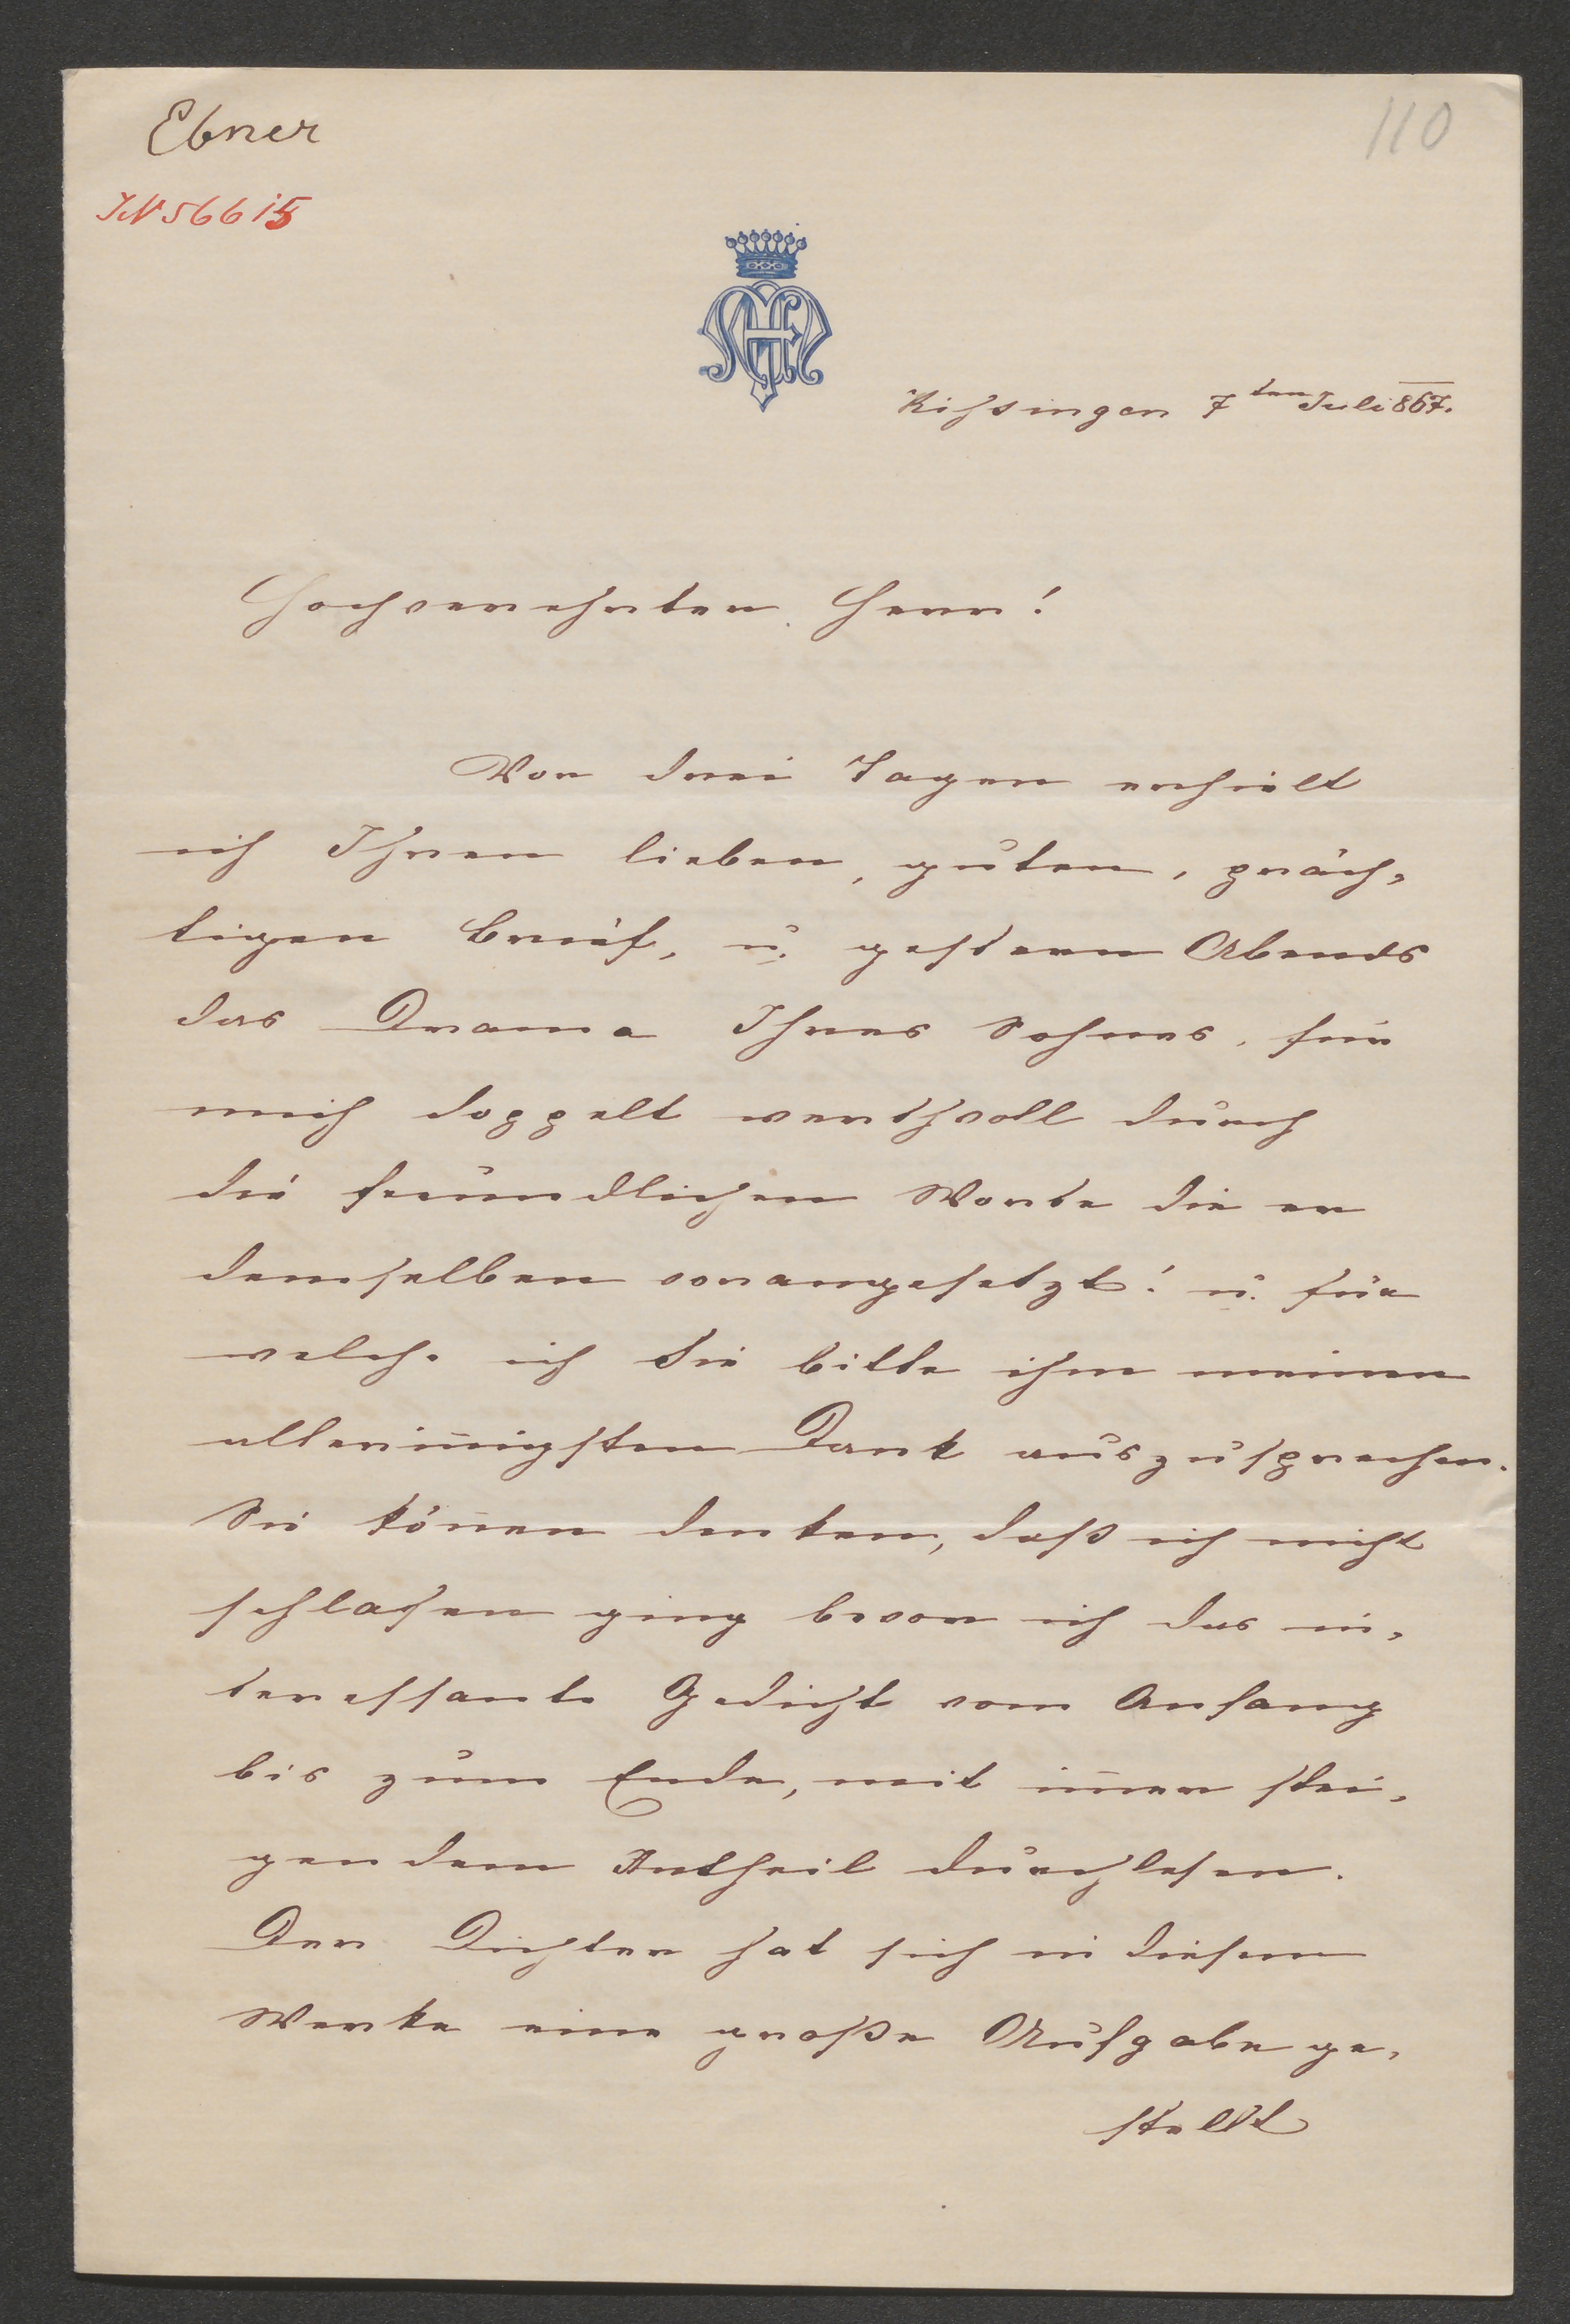 Ebner
110
IN 56615
Kissingen 7ten Juli 867.
Hochverehrter Herr!
Vor drei Tagen erhielt
ich Ihren lieben, guten, präch-
tigen Brief, u. gestern Abends
das Drama Ihres Sohnes, für
mich doppelt werthvoll durch
die freundlichen Worte die er
demselben vorangesetzt! u. für
welche ich Sie bitte ihm meinen
allerin̄igsten Dank auszusprechen.
Sie kön̄en denken, daß ich nicht
schlafen ging bevor ich das in-
teressante Gedicht vom Anfang
bis zum Ende, mit im̄er stei-
gendem Antheil durchlesen.
Der Dichter hat sich in diesem
Werke eine große Aufgabe ge-
stellt